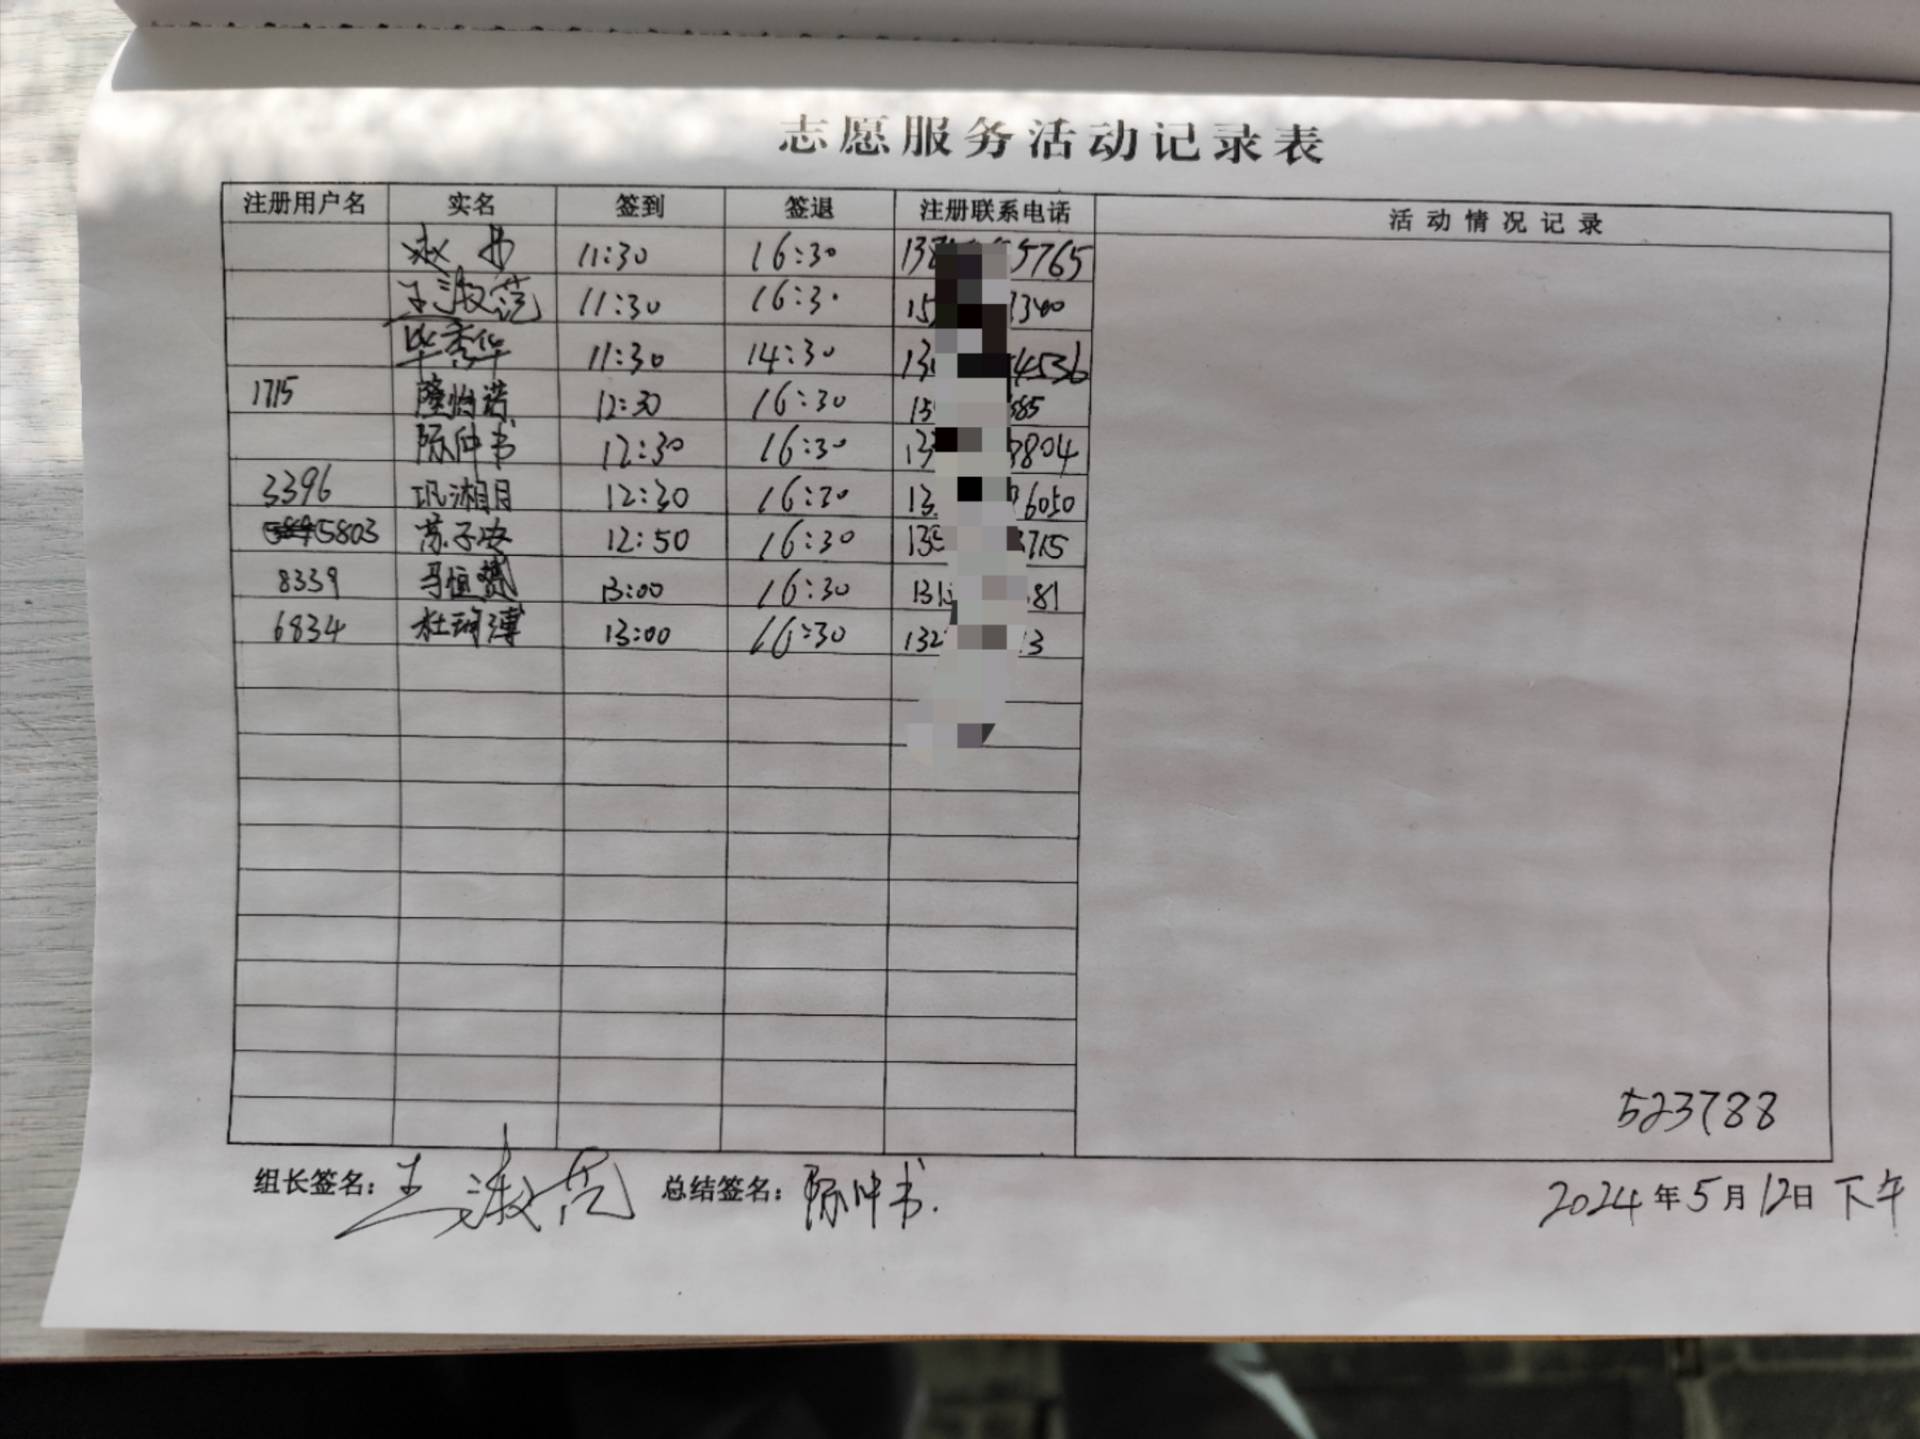 志愿服务活动记录表
注册用户名 实名 签到 签退 注册联系电话 活动情况记录
11:30 16:30 13 5765
王淑 11:30 16:3· 15 1340
毕秀华 11:30 14:30 13 4536
1715 隆怡诺 12:30 16:30 15 385
陈仲书 12:30 16:30 13 3804
3396 巩湘月 12:30 16:30 13 6050
5803 苏子安 12:50 16:30 135 3715
8339 马恒 13:00 16:30 131 81
6834 杜珂溥 13:00 16:30 132 13
523788
组长签名: 王淑 总结签名: 陈仲书.
2024年5月12日 下午